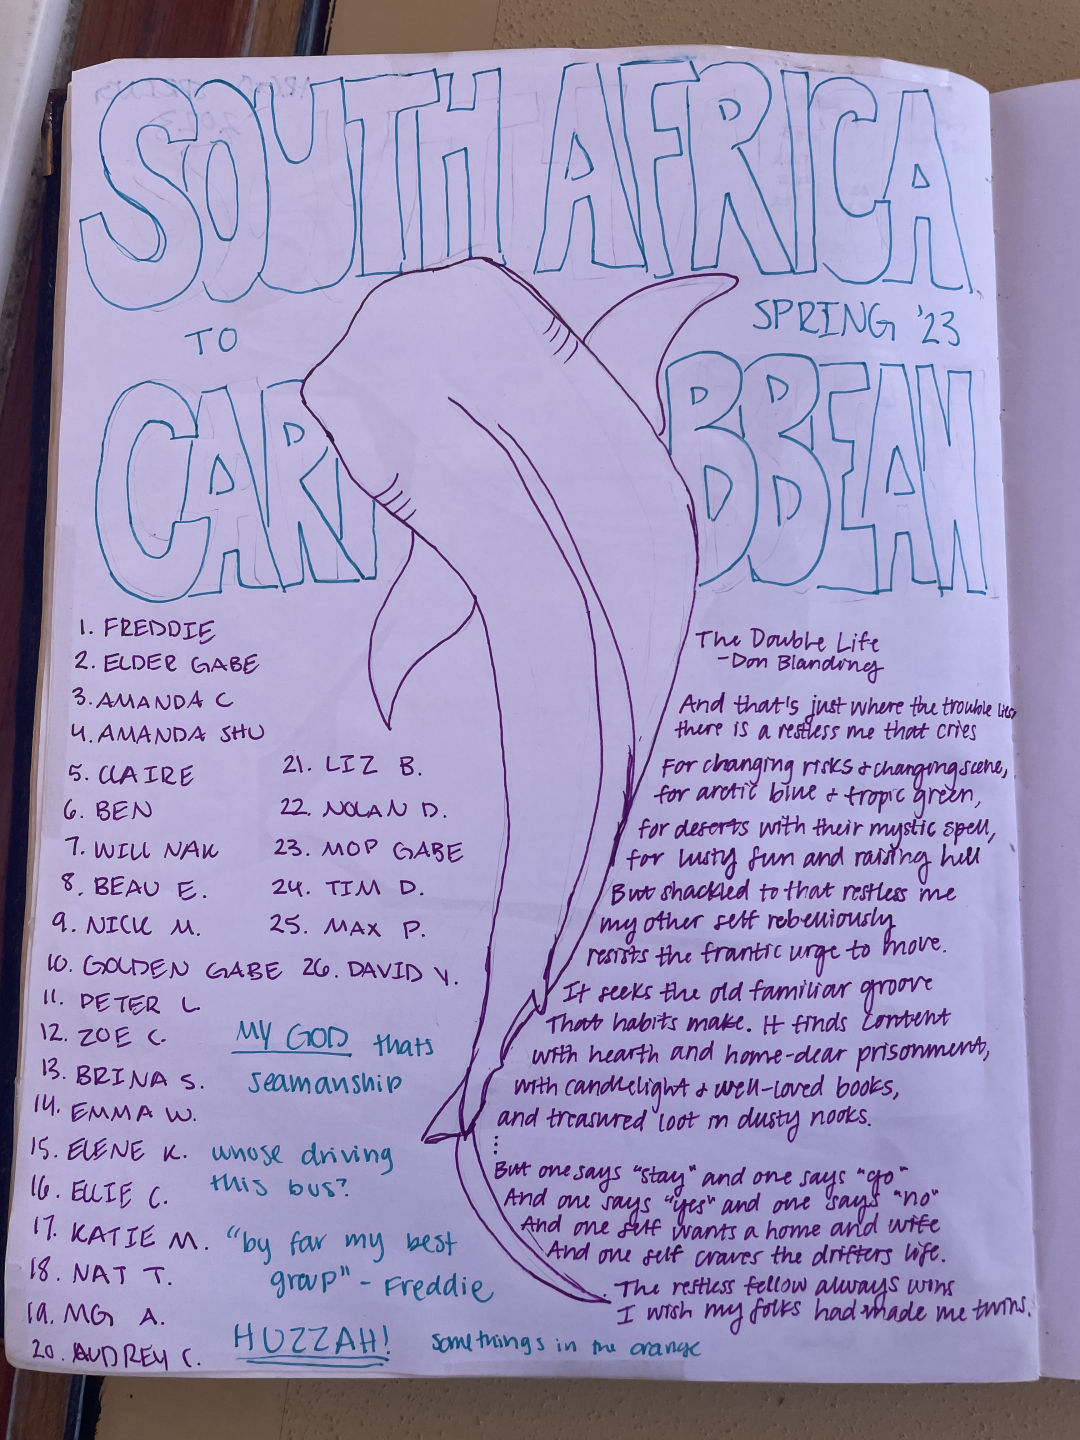 SOUTH AFRICA
TO
SPRING '23
CARIBBEAN
1. FREDDIE
2. ELDER GABE
3. AMANDA C
4. AMANDA SHU
5. CLAIRE
6. BEN
7. WILL NAK
8. BEAU E.
9. NICK M.
10. GOLDEN GABE
11. PETER L
12. ZOE C.
13. BRINA S.
14. EMMA W.
15. ELENE K.
16. ELLIE C.
17. KATIE M.
18. NAT T.
19. MG A.
20. AUDREY C.
21. LIZ B.
22. NOLAN D.
23. MOP GABE
24. TIM D.
25. MAX P.
26. DAVID V.
MY GOD thats
seamanship
whose driving
this bus?
"by far my best
group" - Freddie
HUZZAH!
somethings in the orange
The Double Life
-Don Blanding
And that's just where the trouble lies,
there is a restless me that cries
For changing risks & changing scene,
for arctic blue & tropic green,
for deserts with their mystic spell,
for lusty fun and raising hell
But shackled to that restless me
my other self rebelliously
resists the frantic urge to move.
It seeks the old familiar groove
That habits make. It finds content
with hearth and home-dear prisonment,
with candlelight & well-loved books,
and treasured loot in dusty nooks.
⋮
But one says "stay" and one says "go"
And one says "yes" and one says "no"
And one self wants a home and wife
And one self craves the drifters life.
The restless fellow always wins
I wish my folks had made me twins.